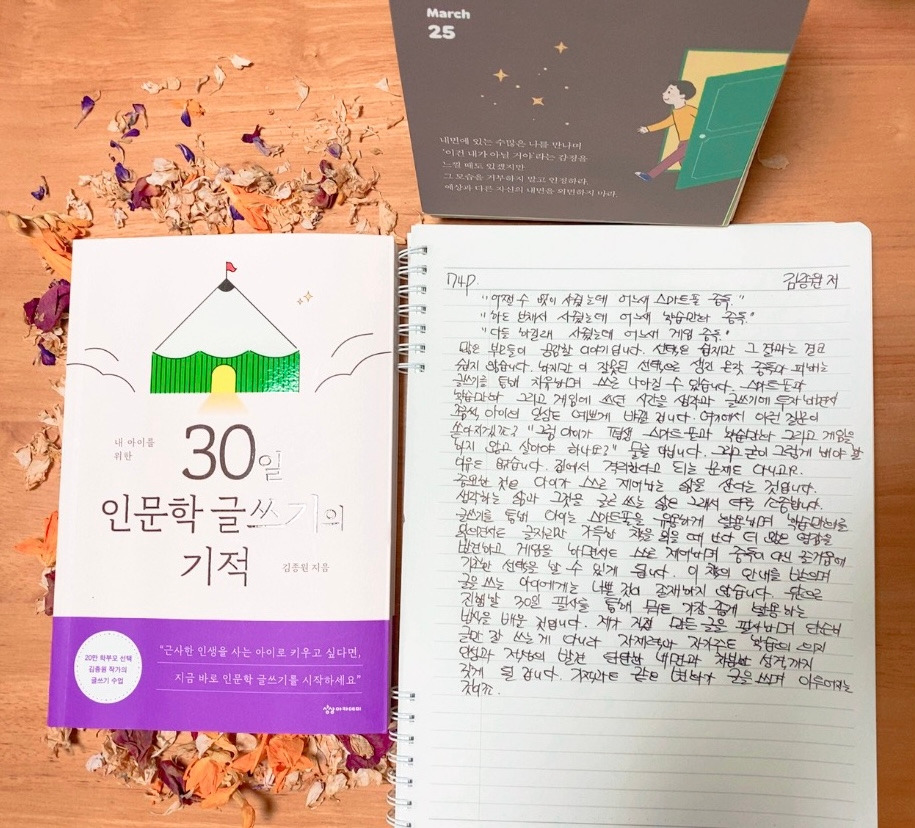 March
25
내면에 있는 수많은 나를 만나며
'이건 내가 아닐 거야'라는 감정을
느낄 때도 있겠지만
그 모습을 거부하지 말고 인정하라.
예상과 다른 자신의 내면을 외면하지 마라.
내 아이를
위한
30일
인문학 글쓰기의
기적
김종원 지음
20만 학부모 선택
김종원 작가의
글쓰기 수업
"근사한 인생을 사는 아이로 키우고 싶다면,
지금 바로 인문학 글쓰기를 시작하세요"
상상아카데미
174p. 김종원 저
"어쩔 수 없이 사줬는데 어느새 스마트폰 중독."
"하도 보채서 사줬는데 어느새 학습만화 중독."
"다들 하길래 사줬는데 어느새 게임 중독."
많은 부모들이 공감할 이야기입니다. 선택은 쉽지만 그 결과는 결코
쉽지 않습니다. 하지만 이 잘못된 선택으로 생긴 온갖 중독과 피해는
글쓰기를 통해 치유하며 스스로 나아질 수 있습니다. 스마트폰과
학습만화 그리고 게임에 쓰던 시간을 생각과 글쓰기에 투자하면서
동시에 아이의 일상도 예쁘게 바뀔 겁니다. 여기에서 이런 질문이
쏟아지겠죠? "그럼 아이가 평생 스마트폰과 학습만화 그리고 게임을
하지 않고 살아야 하나요?" 물론 아닙니다. 그리고 굳이 그렇게 해야 할
이유도 없습니다. 집에서 격리한다고 되는 문제도 아니고요.
중요한 것은 아이가 스스로 제어하는 삶을 산다는 것입니다.
생각하는 삶과 그것을 글로 쓰는 삶은 그래서 더욱 소중합니다.
글쓰기를 통해 아이는 스마트폰을 유용하게 활용하며 학습만화를
읽으면서도 글자로만 가득한 책을 읽을 때 보다 더 많은 영감을
발견하고 게임을 하면서도 스스로 제어하며 중독이 아닌 즐거움에
기초한 선택을 할 수 있게 됩니다. 이 책의 안내를 받으며
글을 쓰는 아이에게는 나쁠 것이 존재하지 않습니다. 앞으로
진행할 30일 필사를 통해 모든 가장 좋게 활용하는
방식을 배운 것입니다. 제가 직접 만든 글을 필사하며 단순히
글만 잘 쓰는 게 아니라 자제력과 자기주도 학습의 의지
인성과 지성의 발전 단단한 내면과 차분한 성격까지
갖게 될 겁니다. 기적과도 같은 변화가 글을 쓰며 이루어지는
것이죠.